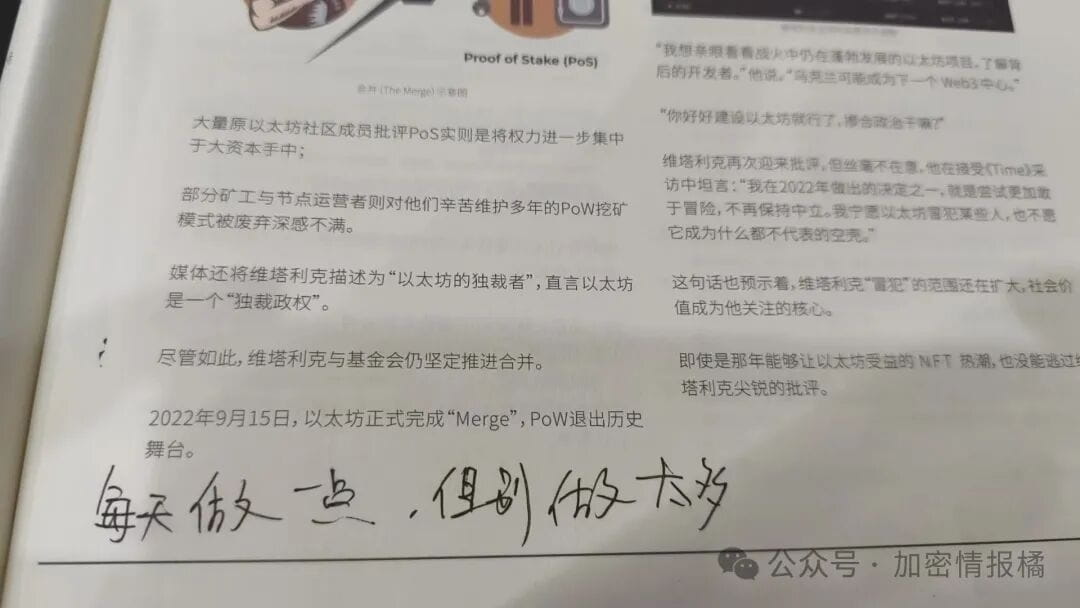 Proof of Stake (PoS)
合并 (The Merge) 示意图
大量原以太坊社区成员批评PoS实则是将权力进一步集中
于大资本手中；
部分矿工与节点运营者则对他们辛苦维护多年的PoW挖矿
模式被废弃深感不满。
媒体还将维塔利克描述为“以太坊的独裁者”，直言以太坊
是一个“独裁政权”。
尽管如此，维塔利克与基金会仍坚定推进合并。
2022年9月15日，以太坊正式完成“Merge”，PoW退出历史
舞台。
“我想亲眼看看战火中仍在蓬勃发展的以太坊项目，了解背
后的开发者。”他说。“乌克兰可能成为下一个 Web3 中心。”
“你好好建设以太坊就行了，掺合政治干嘛？”
维塔利克再次迎来批评，但丝毫不在意，他在接受《Time》采
访中坦言：“我在2022年做出的决定之一，就是尝试更加敢
于冒险，不再保持中立。我宁愿以太坊冒犯某些人，也不愿
它成为什么都不代表的空壳。”
这句话也预示着，维塔利克“冒犯”的范围还在扩大，社会价
值成为他关注的核心。
即使是那年能够让以太坊受益的 NFT 热潮，也没能逃过维
塔利克尖锐的批评。
每天做一点，但别做太多
公众号·加密情报橘